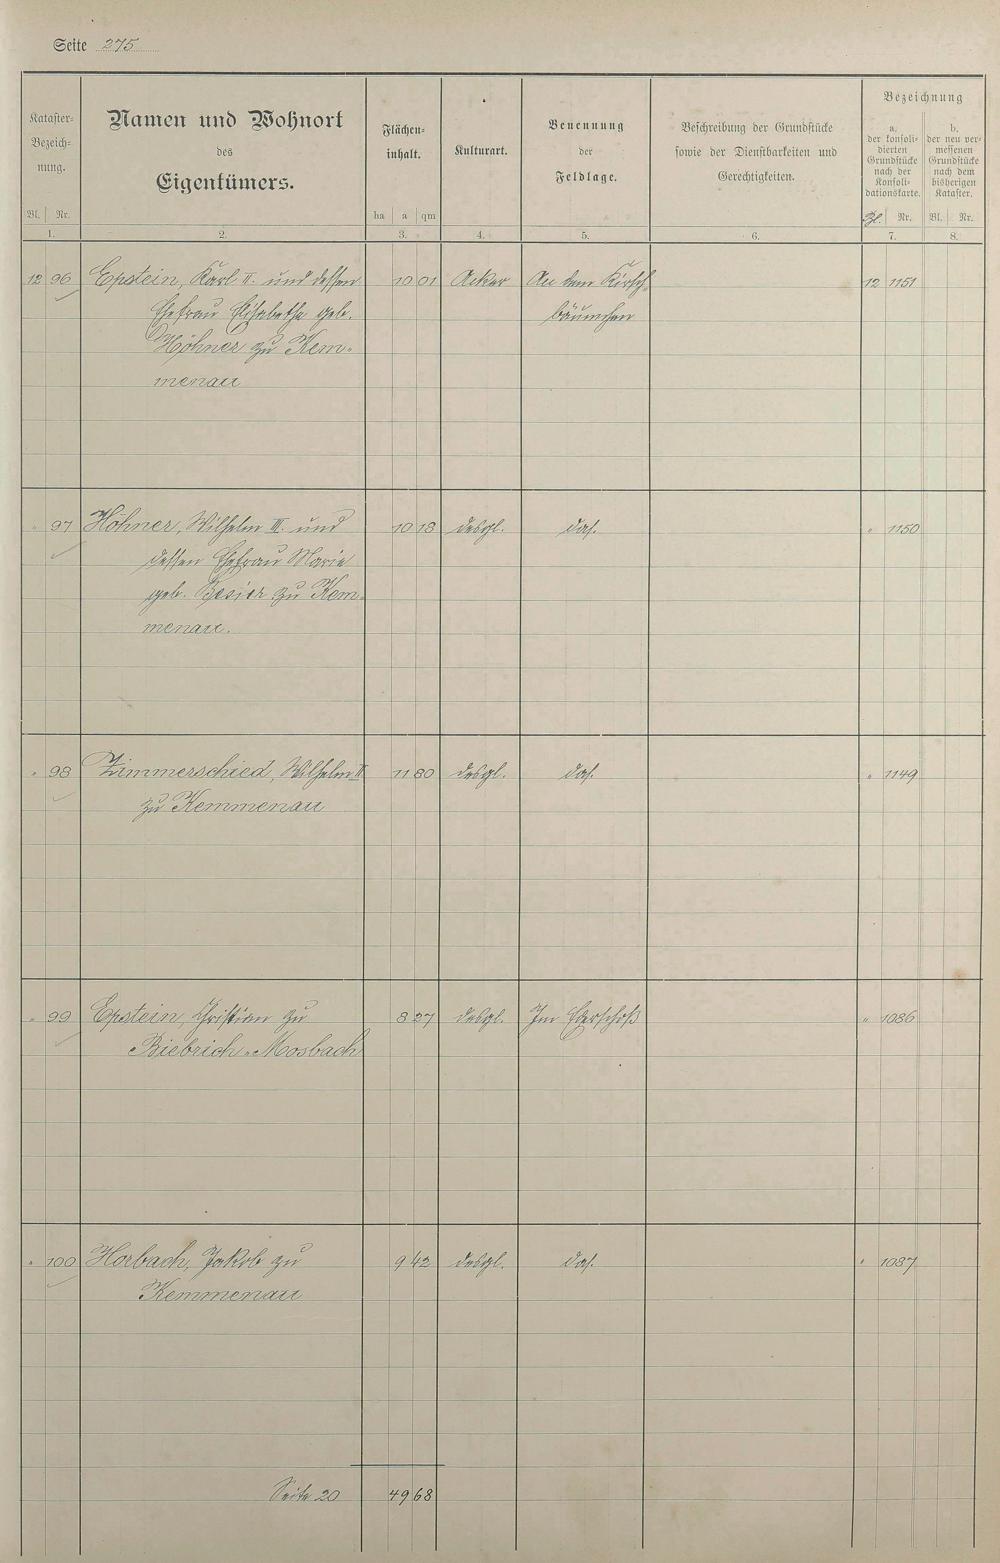 Seite 275
Kataster-
Bezeich-
nung.
Bl. Nr.
1.
Namen und Wohnort
des
Eigentümers.
2.
Flächen-
inhalt.
ha a qm
3.
Kulturart.
4.
Benennung
der
Feldlage.
5.
Beschreibung der Grundstücke
sowie der Dienstbarkeiten und
Gerechtigkeiten.
6.
Bezeichnung
a.
der konsoli-
dierten
Grundstücke
nach der
Konsoli-
dationskarte.
Bl. Nr.
7.
b.
der neu ver-
messenen
Grundstücke
nach dem
bisherigen
Kataster.
Bl. Nr.
8.
12 96 Epstein, Karl II. und dessen 10 01 Acker An dem Kirsch- 12 1151
Ehefrau Elisabethe geb. bäumchen
Höhner zu Kem-
menau
" 97 Höhner, Wilhelm III. und 10 18 desgl. das. " 1150
dessen Ehefrau Marie
geb. Besier zu Kem-
menau.
" 98 Zimmerschied, Wilhelm II 11 80 desgl. das. " 1149
zu Kemmenau
" 99 Epstein, Christian zu 8 27 desgl. Im " 1086
Biebrich-Mosbach
" 100 Horbach, Jakob zu 9 42 desgl. das. " 1087
Kemmenau
Seite 20 49 68